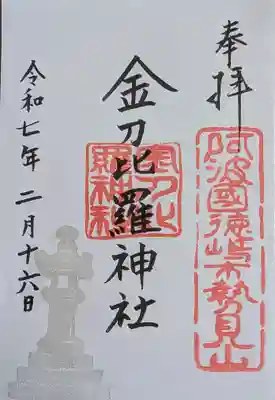 奉拝
阿波國徳島市勢見山
金刀比羅神社
金刀比羅神社
令和七年 二月十六日